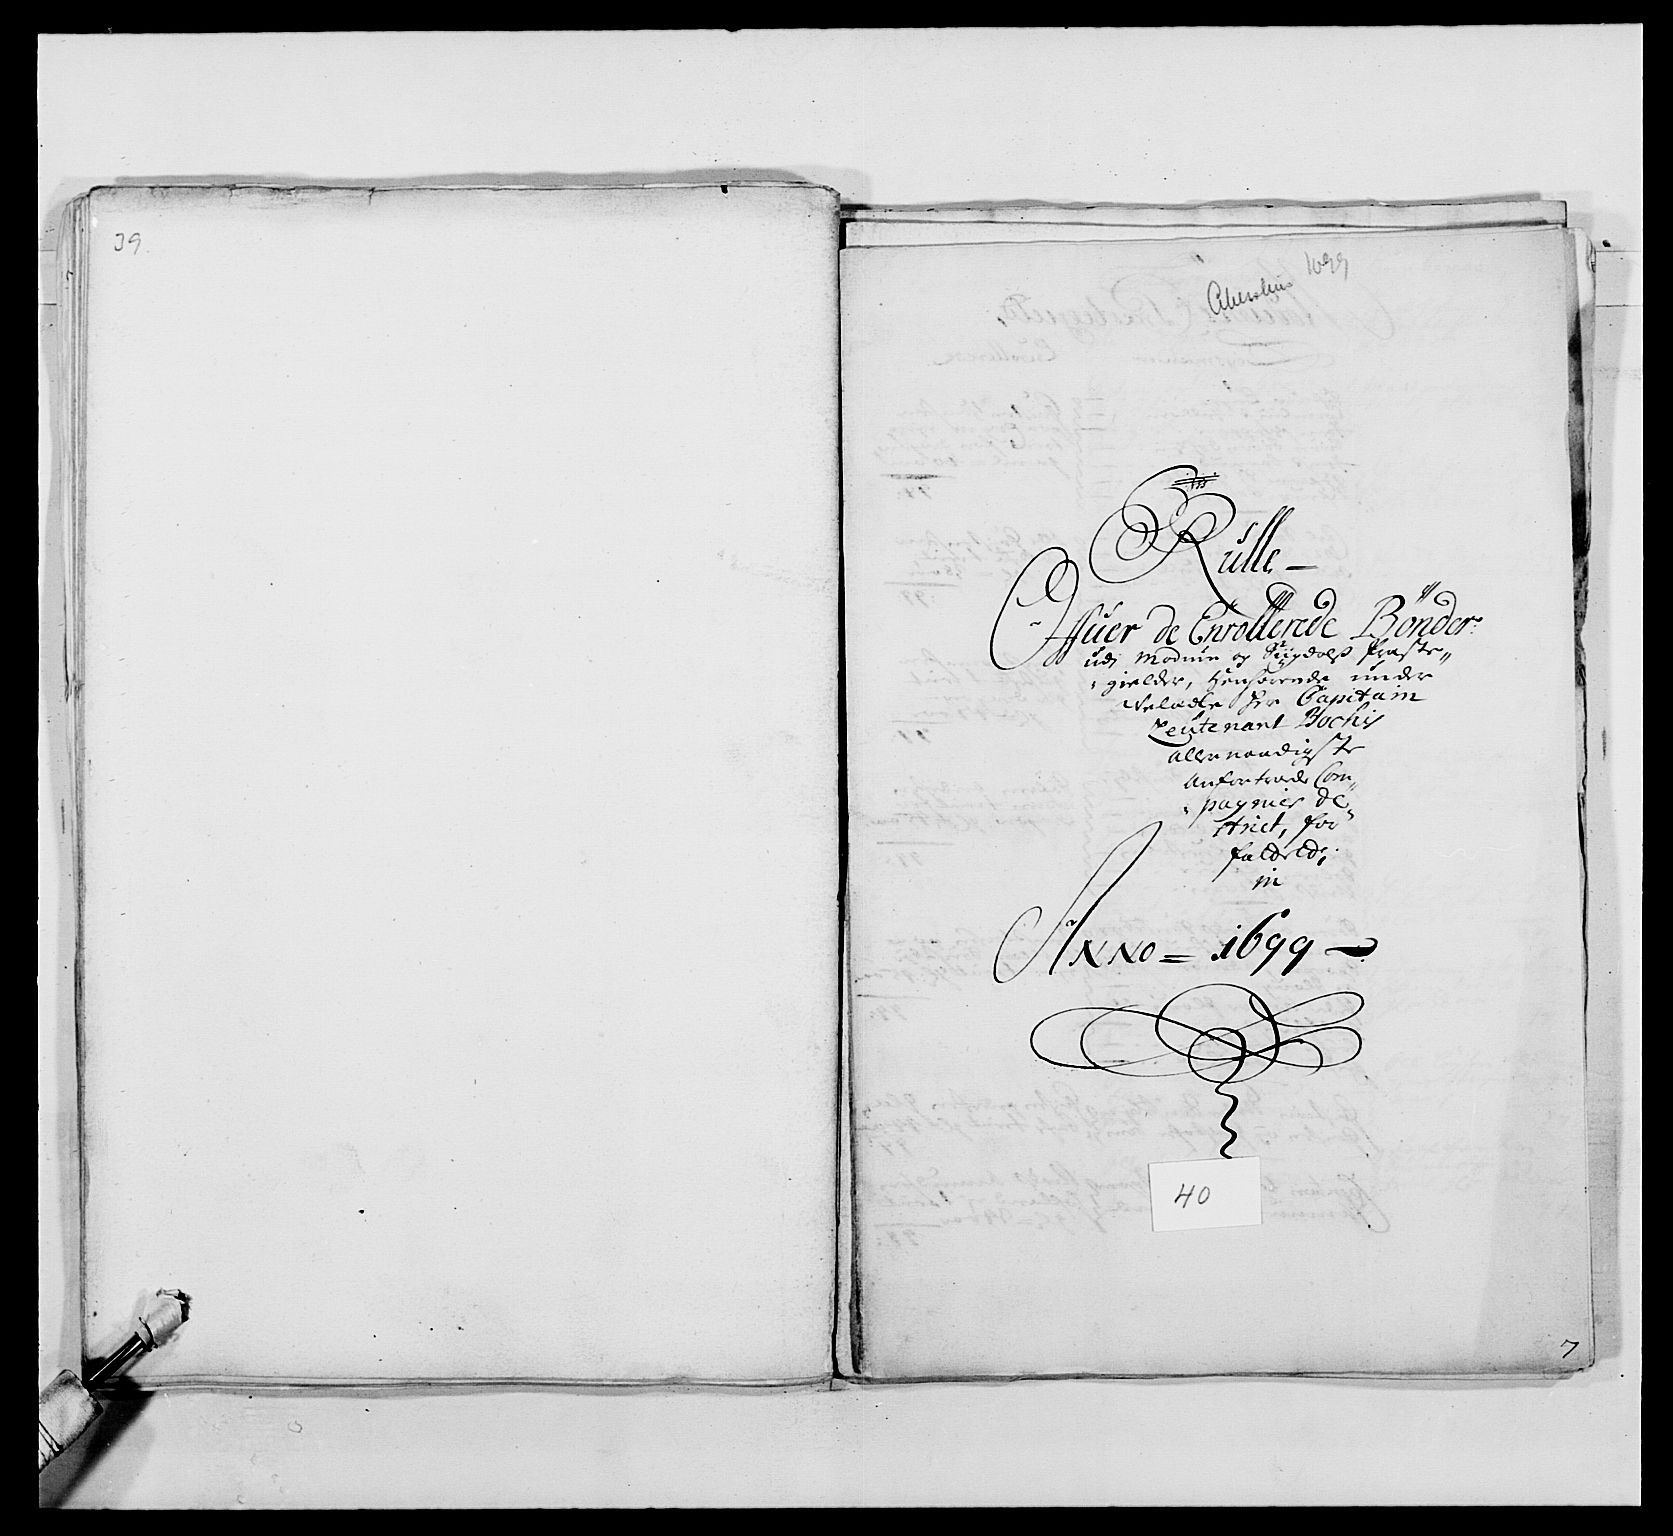 39
1699
Akershus
Rulle
Offuer de Enrollerede Bönder
udj Modum og Sigdals Præste„
„gielder, Henhörende under
Velædle Hr Capitain
Leutenant Bochis
allernaadigste
anfortroede Com„
„pagnies de„
strict, for„
fatted;
in
ANNO = 1699
40
7